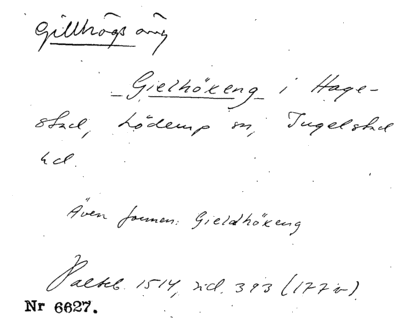 Gillhögs äng
Gielhökeng i Hage-
stad, Löderup sn, Ingelstad
hd.
Även formen: Gieldhökeng
Palteb. 1514, sid. 393 (177v).
Nr 6627.